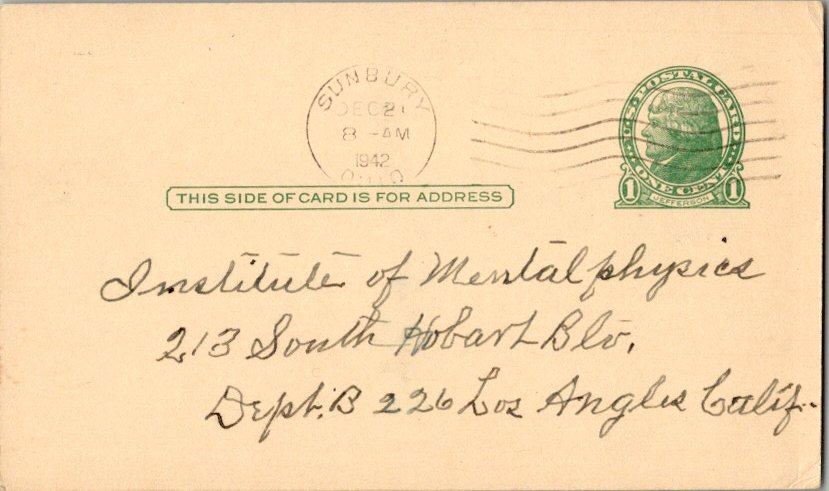 SUNBURY
DEC 21
8 -AM
1942
OHIO
U.S. POSTAL CARD
1 ONE CENT 1
JEFFERSON
THIS SIDE OF CARD IS FOR ADDRESS
Institute of Mentalphysics
213 South Hobart Blv.
Dept. B 226 Los Angles Calif.